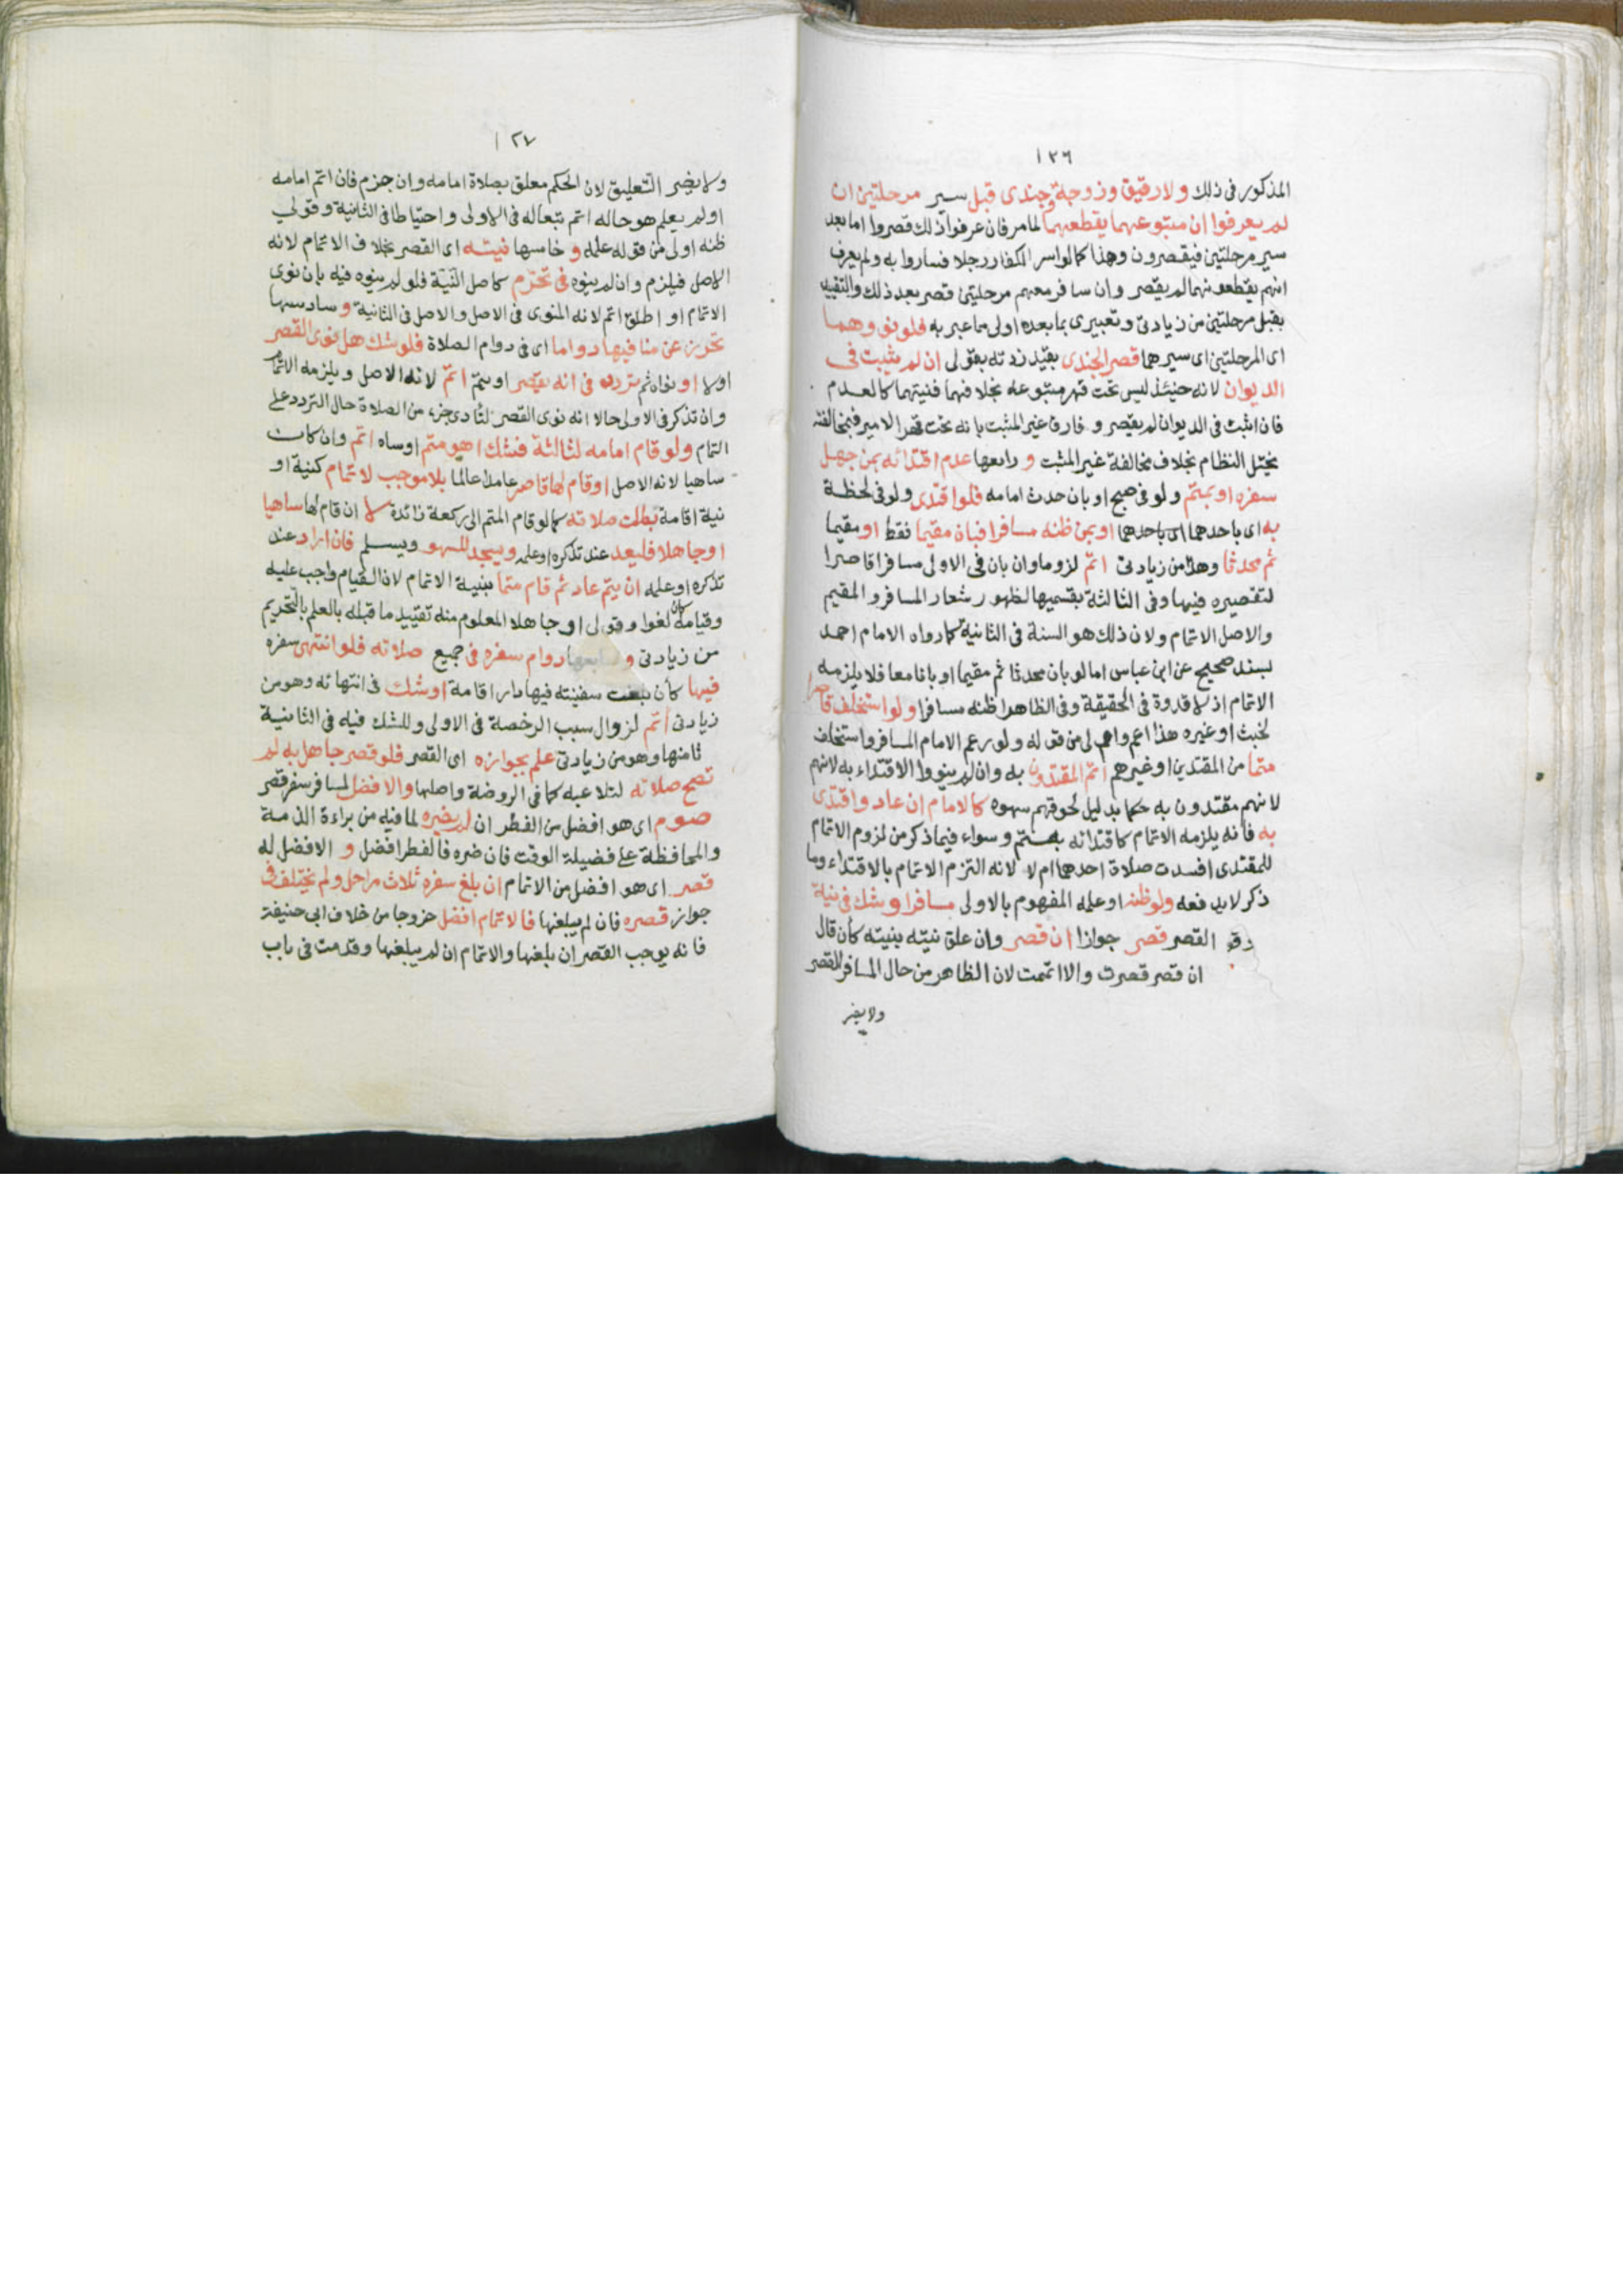 ١٢٦
المذكور فى ذلك ولا رقيق وزوجة وجندى قبل سير مرحلتين ان
لم يعرفوا ان متبوعهما يقطعهما لما مر فان عرفوا ذلك قصروا اما بعد
سير مرحلتين فيقصرون وهذا كما لو اسر الكفار رجلا فساروا به ولم يعرف
انهم يقطعونهما لم يقصر وان سافر معهم مرحلتين قصر بعد ذلك والتقييد
بقبل مرحلتين من زيادتى وتعبيرى بما بعده اولى مما عبر به فلو نووهما
اى المرحلتين اى سيرهما قصر الجندى بقيد زدته بقولى ان لم يثبت فى
الديوان لانه حينئذ ليس تحت قهر متبوعه بخلافهما فنيتهما كالعدم
فان اثبت فى الديوان لم يقصر وفارق غير المثبت بانه تحت قهر الامير فبمخالفته
يختل النظام بخلاف مخالفة غير المثبت و رابعها عدم اقتدائه بمن جهل
سفره او بمتم ولو فى صبح او بان حدث امامه فلو اقتدى ولو فى لحظة
به اى باحدهما اى باحدهما او بمن ظنه مسافرا فبان مقيما فقط او مقيما
ثم محدثا وهذا من زيادتى اتم لزوما وان بان فى الاولى مسافرا قاصرا
لتقصيره فيها وفى الثالثة بقسميها لظهور شعار المسافر والمقيم
والاصل الاتمام ولان ذلك هو السنة فى الثانية كما رواه الامام احمد
بسند صحيح عن ابن عباس اما لو بان محدثا ثم مقيما او بانا معا فلا يلزمه
الاتمام اذ لا قدوة فى الحقيقة وفى الظاهر ظنه مسافرا ولو استخلف قاصر
لخبث او غيره هذا اعم من قوله ولو رعف الامام المسافر واستخلف
متما من المقتدين او غيرهم اتم المقتدون به وان لم ينووا الاقتداء به لانهم
لانهم مقتدون به حكما بدليل لحوقهم سهوه كالامام ان عاد واقتدى
به فانه يلزمه الاتمام كاقتدائه بمتم وسواء فيما ذكر من لزوم الاتمام
للمقتدى افسدت صلاة احدهما ام لا لانه التزم الاتمام بالاقتداء وما
ذكر لا يدفعه ولو ظنه او علمه المفهوم بالاولى مسافرا وشك فى نية
القصر قصر جوازا ان قصر وان علق نيته بنيته كأن قال
ان قصر قصرت والا اتممت لان الظاهر من حال المسافر القصر
ولا يضر
١٢٧
ولا يضر التعليق لان الحكم معلق بصلاة امامه وان جزم فان اتم امامه
او لم يعلم هو حاله اتم تبعا له فى الاولى واحتياطا فى الثانية وقولى
ظنه اولى من قوله علمه و خامسها نيته اى القصر بخلاف الاتمام لانه
الاصل فيلزم وان لم ينوه فى تحرم كاصل النية فلو لم ينوه فيه بان نوى
الاتمام او اطلق اتم لانه المنوى فى الاصل والاصل فى الثانية و سادسها
تحرز عن منافيها دواما اى فى دوام الصلاة فلو شك هل نوى القصر
اولا او نواه ثم تردد فى انه يقصر او يتم اتم لانه الاصل ويلزمه الاتمام
وان تذكر فى الاولى حالا انه نوى القصر لتأدى جزء من الصلاة حال التردد على
التمام ولو قام امامه لثالثة فشك اهو متم او ساه اتم وان كان
ساهيا لانه الاصل او قام لها قاصر عامدا عالما بلا موجب لاتمام كنيته او
نية اقامة بطلت صلاته كما لو قام المتم الى ركعة زائدة لا ان قام لها ساهيا
او جاهلا فليعد عند تذكره او علمه ويسجد للسهو ويسلم فان اراد عند
تذكره او علمه ان يتم عاد ثم قام متما بنية الاتمام لان القيام واجب عليه
وقيامه كان لغوا وقولى او جاهلا المعلوم منه تقييد ما قبله بالعلم بالتحريم
من زيادتى و سابعها دوام سفره فى جميع صلاته فلو انتهى سفره
فيها كأن بلغت سفينته فيها دار اقامة او شك فى انتهائه وهو من
زيادتى اتم لزوال سبب الرخصة فى الاولى وللشك فيه فى الثانية
ثامنها وهو من زيادتى علم بجوازه اى القصر فلو قصر جاهل به لم
تصح صلاته لتلاعبه كما فى الروضة واصلها والافضل لمسافر سفر قصر
صوم اى هو افضل من الفطر ان لم يضره لما فيه من براءة الذمة
والمحافظة على فضيلة الوقت فان ضره فالفطر افضل و الافضل له
قصر اى هو افضل من الاتمام ان بلغ سفره ثلاث مراحل ولم يختلف فى
جواز قصره فان لم يبلغها فالاتمام افضل خروجا من خلاف ابى حنيفة
فانه يوجب القصر ان بلغها والاتمام ان لم يبلغها وقدمت فى باب